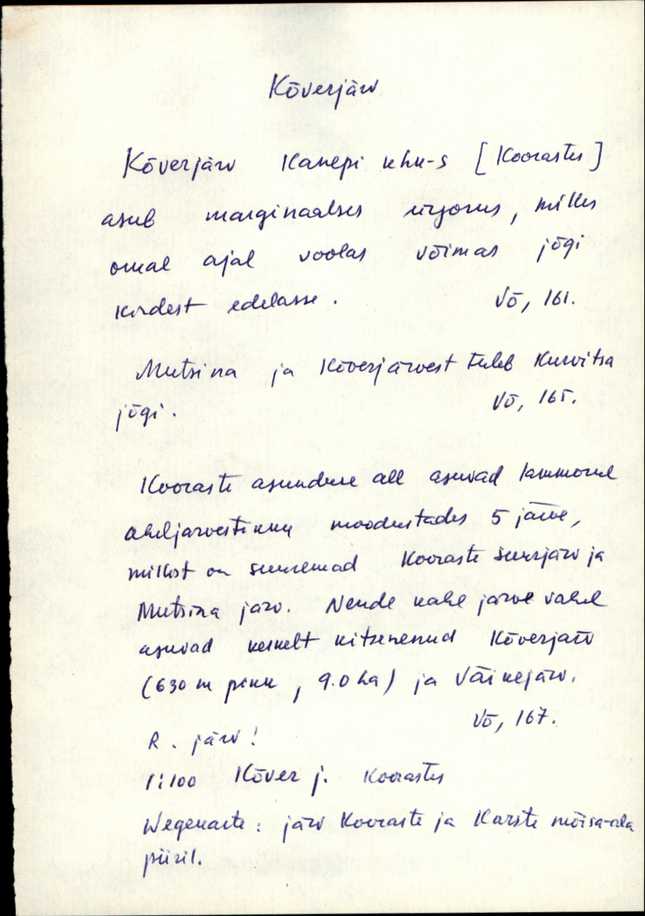 Kõverjärv
Kõverjärv Kanepi khk-s [Koorastes]
asub marginaalses ürgorus, milles
omal ajal voolas võimas jõgi
kirdest edelasse. Võ, 161.
Mutsina ja Kõverjärvest tuleb Kurvitsa
jõgi. Võ, 165.
Kooraste asunduse all asuvad
aheljärvestikku moodustades 5 järve,
millest on suuremad Kooraste Suurjärv ja
Mutsina järv. Nende kahe järve vahel
asuvad keskelt kitsenenud Kõverjärv
(630 m pikk, 9.0 ha) ja Väikejärv.
Võ, 167.
R. järv!
1:100 Kõver j. Koorastes
Wegekarte: järv Kooraste ja Karste mõisa-ala
piiril.